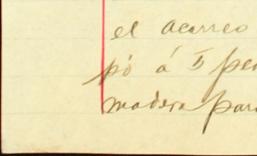 el acarreo
pó á 5 pe
madera para